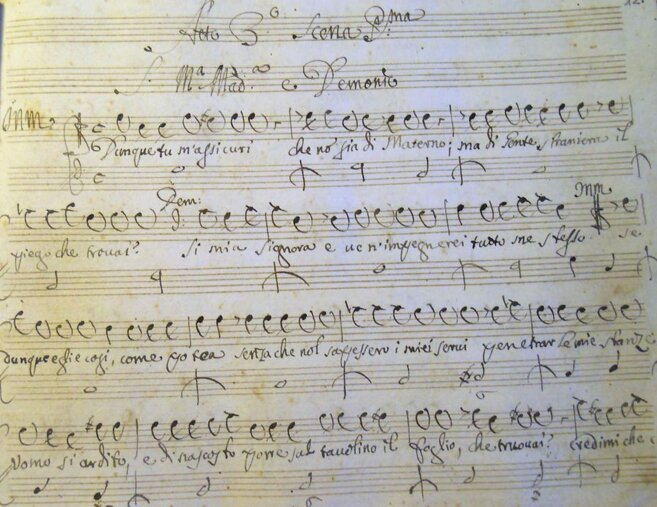 Atto 3.º Scena P.ma
S. M.a Mad.a e Demonio
Dunque tu m'assicuri che no' sia di Materno; ma di fonte straniera il
Dem:
piego che trovai? Si mia Signora e ve n'impegnerei tutto me stesso se
dunque egli e cosi, come potea senza che nol sapessero i miei servi penetrar le mie stanze
Uomo si ardito, e di nascosto porre sul tavolino il foglio, che truovai? credimi che